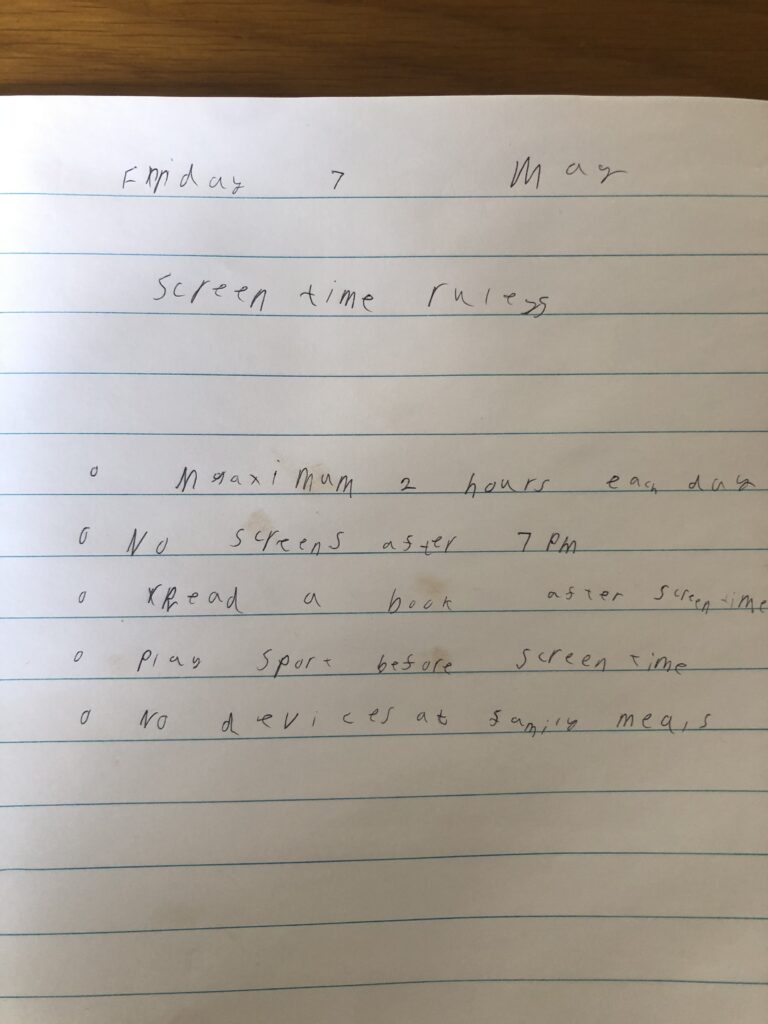 Friday 7 May
Screen time rules
o Maximum 2 hours each day
o No screens after 7 PM
o Read a book after screen time
o Play sport before screen time
o No devices at family meals